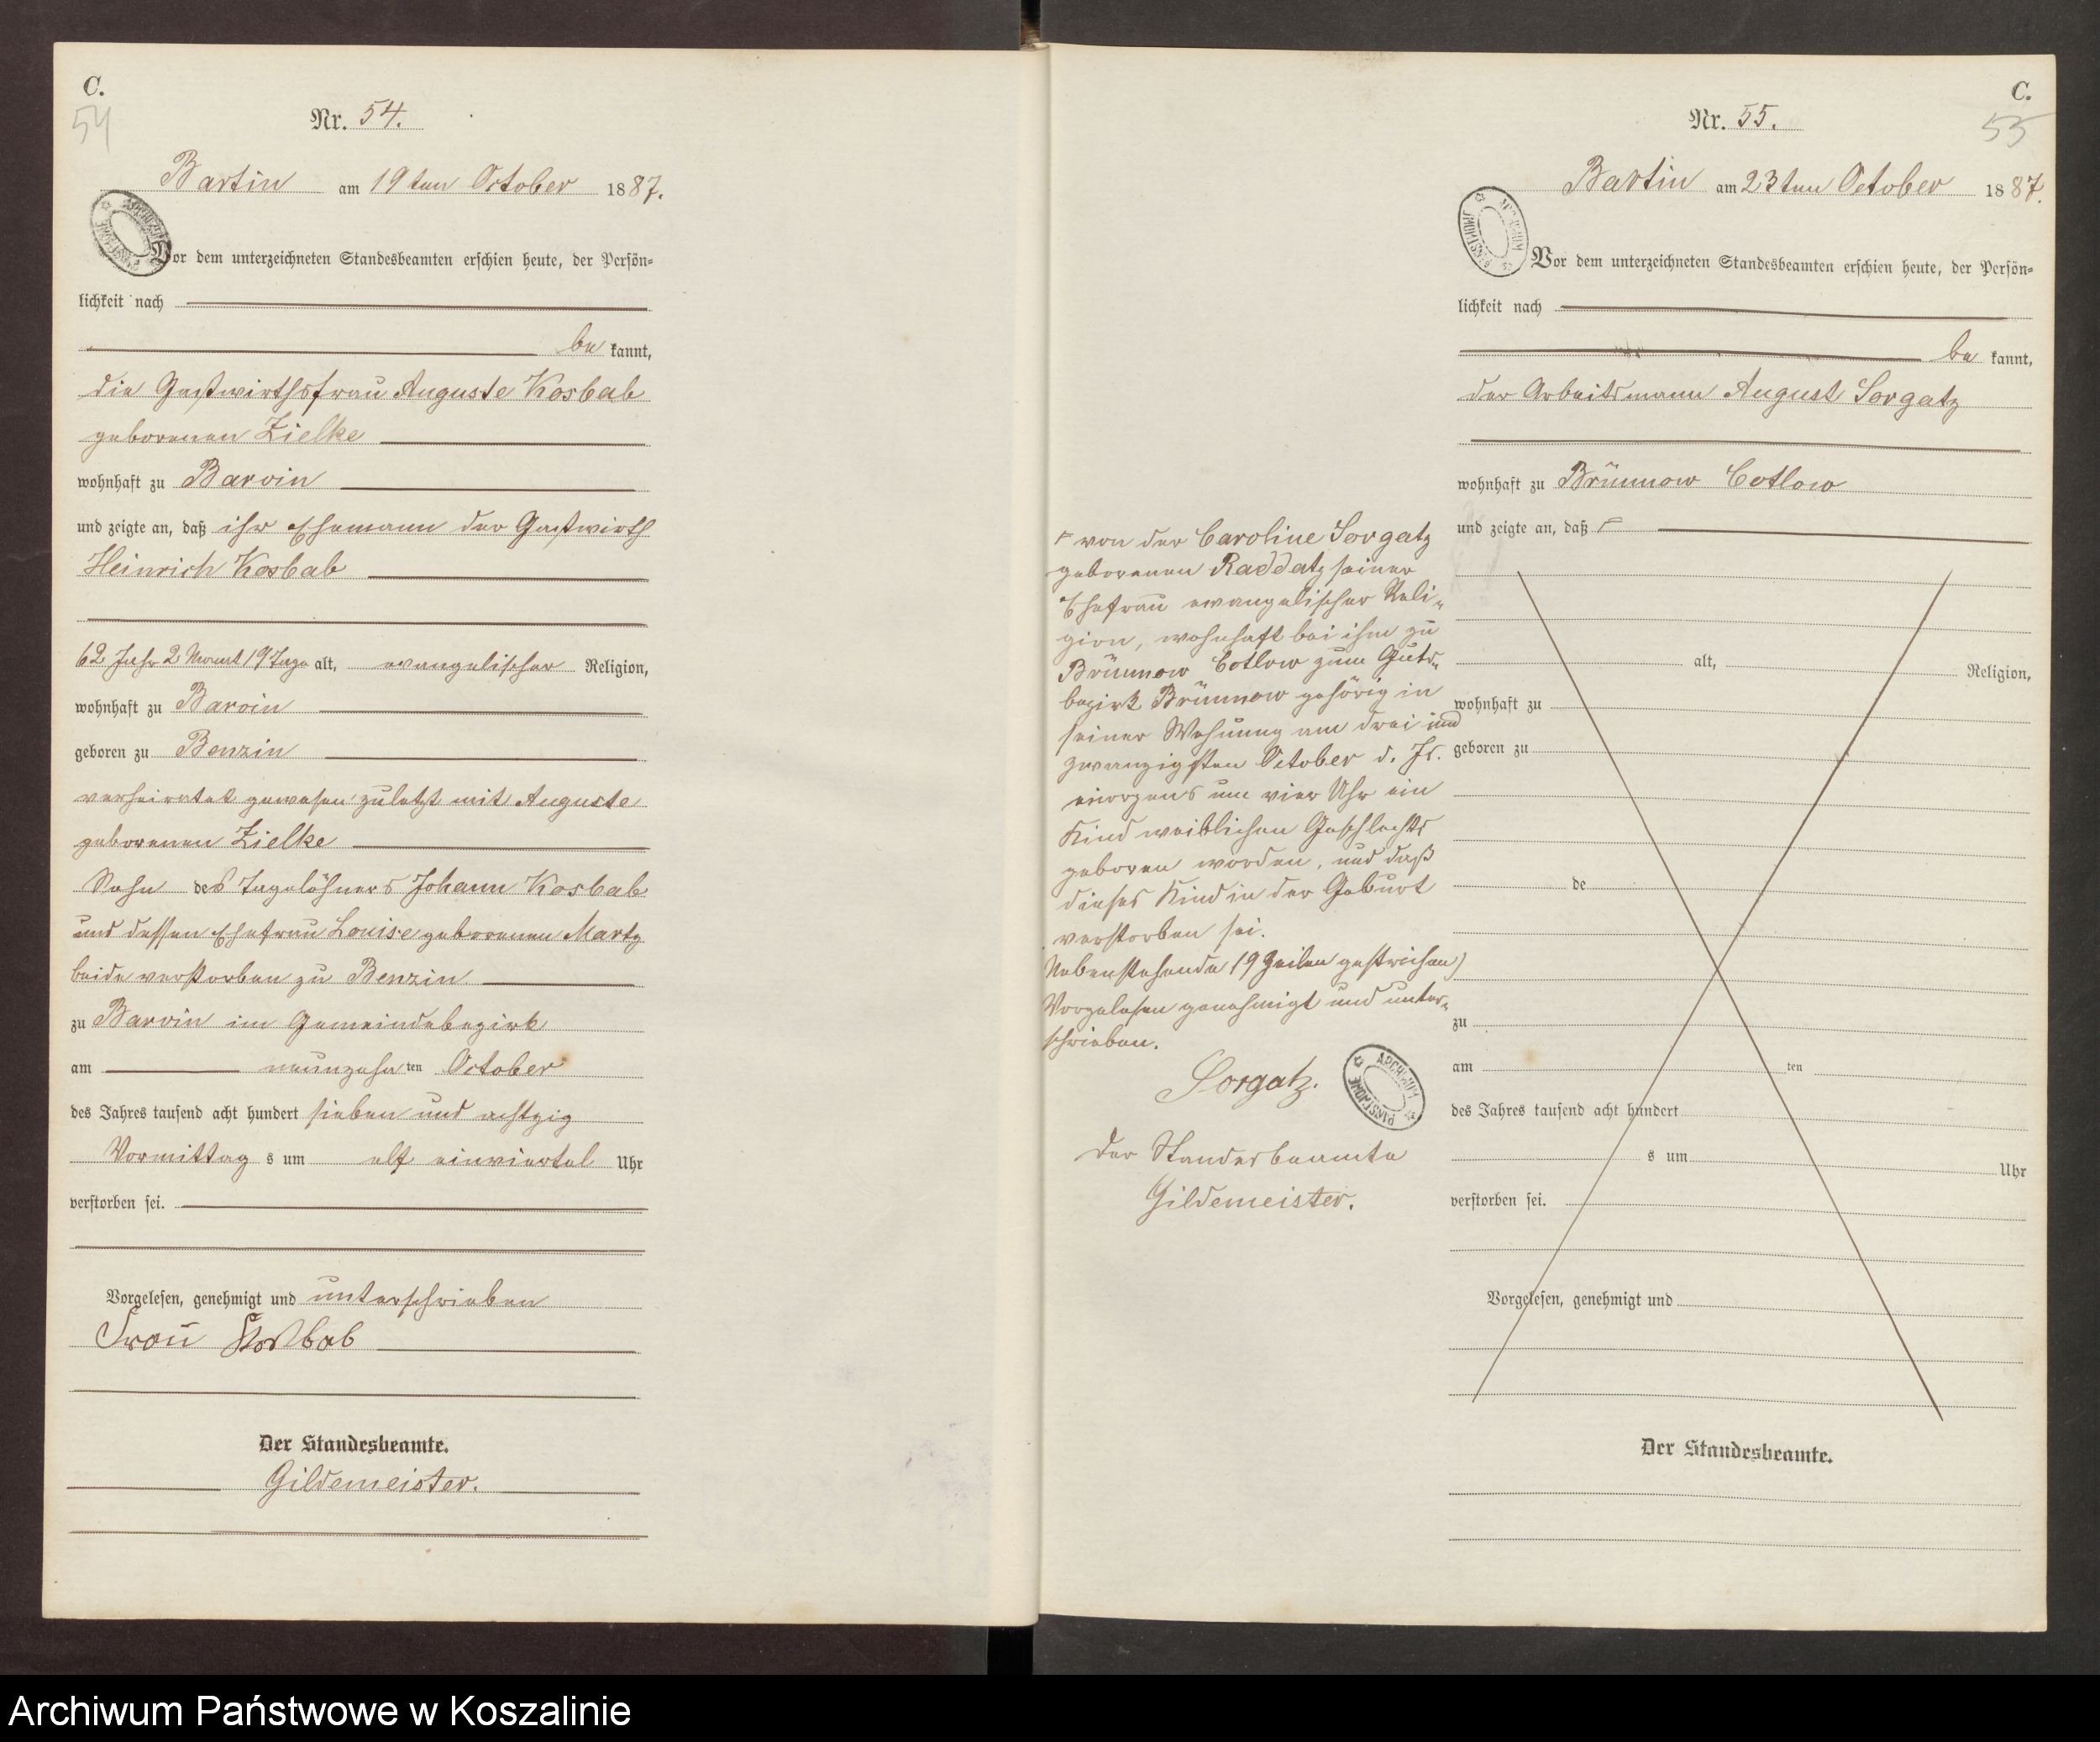 C.
54
Nr. 54.
Bartin am 19ten October 1887.
Vor dem unterzeichneten Standesbeamten erschien heute, der Persön-
lichkeit nach
be kannt,
die Gastwirthsfrau Auguste Kosbab
geborenen Zielke
wohnhaft zu Barvin
und zeigte an, daß ihr Ehemann der Gastwirth
Heinrich Kosbab
62 Jahr 2 Monat 19 Tage alt, evangelischer Religion,
wohnhaft zu Barvin
geboren zu Benzin
verheiratet gewesen zuletzt mit Auguste
geborenen Zielke
Sohn des Tagelöhners Johann Kosbab
und dessen Ehefrau Louise geborenen Martz
beide verstorben zu Benzin
zu Barvin im Gemeindebezirk
am neunzehn ten October
des Jahres tausend acht hundert sieben und achtzig
Vormittag s um elf einviertel Uhr
verstorben sei.
Vorgelesen, genehmigt und unterschrieben
Frau Koßbab
Der Standesbeamte.
Gildemeister.
C.
55
Nr. 55.
Bartin am 23ten October 1887.
Vor dem unterzeichneten Standesbeamten erschien heute, der Persön-
lichkeit nach
be kannt,
der Arbeitsmann August Sorgatz
wohnhaft zu Brünnow Cotlow
und zeigte an, daß
von der Caroline Sorgatz
geborenen Raddatz seiner
Ehefrau evangelischer Reli-
gion, wohnhaft bei ihm zu
Brünnow Cotlow zum Guts-
bezirk Brünnow gehörig in
seiner Wohnung am drei und
zwanzigsten October d. Js.
morgens um vier Uhr ein
Kind weiblichen Geschlechts
geboren worden, und daß
dieses Kind in der Geburt
verstorben sei.
Nebenstehende 19 Zeilen gestrichen)
Vorgelesen genehmigt und unter-
schrieben.
Sorgatz.
Der Standesbeamte
Gildemeister.
alt, Religion,
wohnhaft zu
geboren zu
de
zu
am ten
des Jahres tausend acht hundert
s um Uhr
verstorben sei.
Vorgelesen, genehmigt und
Der Standesbeamte.
ARCHIWUM PAŃSTWOWE
Archiwum Państwowe w Koszalinie